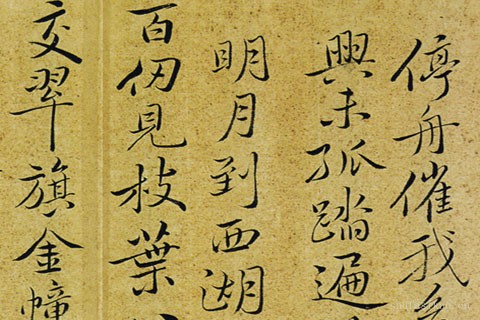 停舟催我
興未孤踏遍
明月到西湖
百仞見枝葉
交翠旗金幢